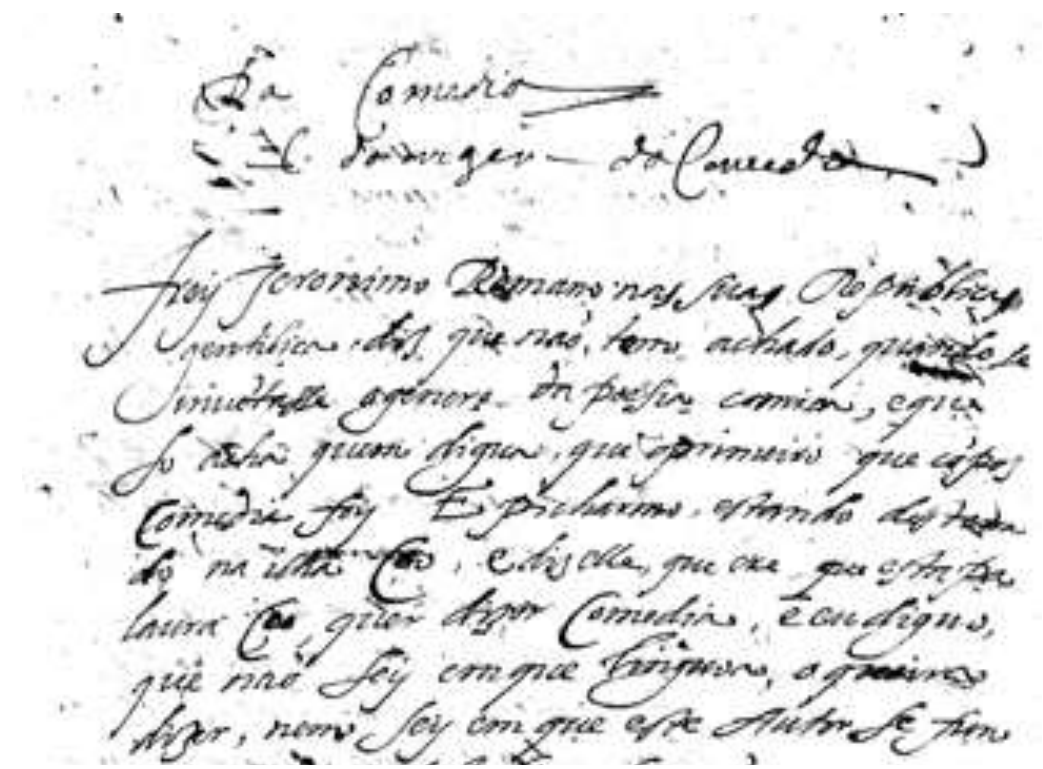 Da Comedia
da origem da Comedia
Frey Jeronimo Romano nas suas Republicas
gentilica, dis que não tem achado, quando se
inuētasse a genero da poesia comica, e que
so acha quem digua, que o primeiro que cōpos
Comedia foy Epicharmo, estando desterra
do na ilha Coo, e dis elle, que cre que esta pa
laura Coo, quer dizer Comedia, e eu diguo,
que não sey em que linguoa, o queira
dizer, nem sey em que este Autor se fun